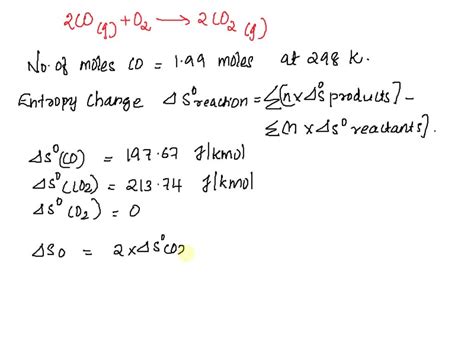 2CO(g) + O2 → 2CO2(g)
No. of moles CO = 1.99 moles at 298 K.
Entropy Change ΔS⁰reaction = Σ[n×ΔS⁰ products] -
Σ[n × ΔS⁰ reactants].
ΔS⁰(CO) = 197.67 J/kmol
ΔS⁰(CO2) = 213.74 J/kmol
ΔS⁰(O2) = 0
ΔS0 = 2×ΔS⁰(CO2